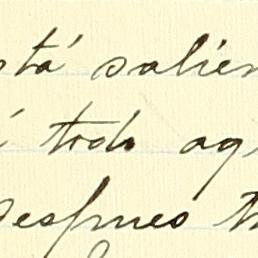 stá salien
í todo ag
despues t